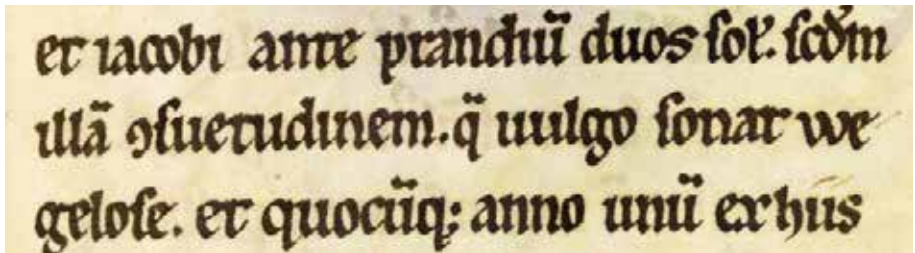 et iacobi ante prandiū duos sol̄. scd̄m
illā ꝯsuetudinem. q̄ uulgo sonat we
gelose. et quocūq; anno unū ex hiis